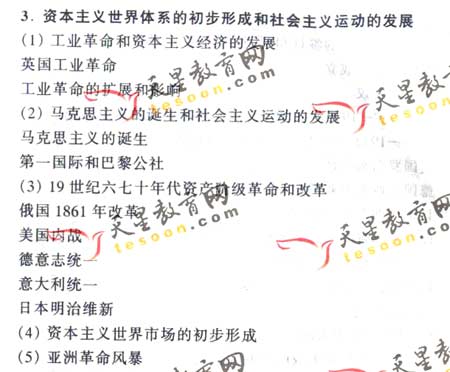 3. 资本主义世界体系的初步形成和社会主义运动的发展
(1) 工业革命和资本主义经济的发展
英国工业革命
工业革命的扩展和影响
(2) 马克思主义的诞生和社会主义运动的发展
马克思主义的诞生
第一国际和巴黎公社
(3) 19世纪六七十年代资产阶级革命和改革
俄国1861年改革
美国内战
德意志统一
意大利统一
日本明治维新
(4) 资本主义世界市场的初步形成
(5) 亚洲革命风暴
天星教育网
tesoon.com
天星教育网
tesoon.com
天星教育网
tesoon.com
天星教育网
tesoon.com